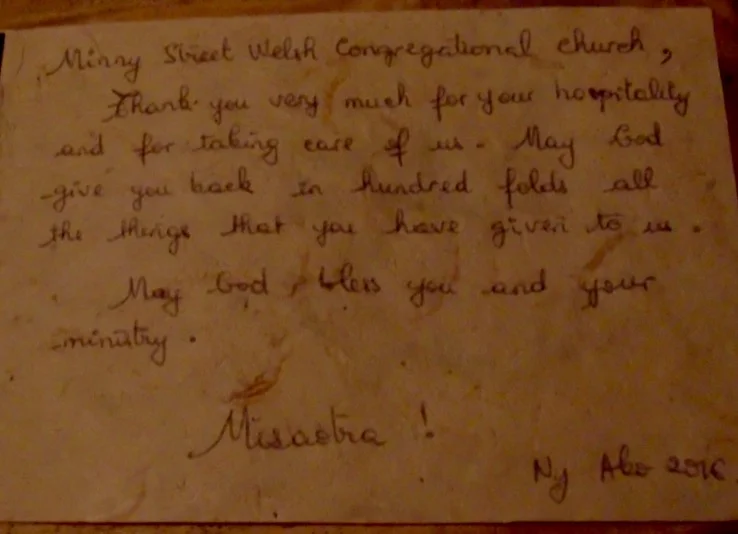 Minny Street Welsh Congregational church,
Thank you very much for your hospitality
and for taking care of us. May God
give you back in hundred folds all
the things that you have given to us.
May God, bless you and your
ministry.
Misaotra !
Ny Ako 2016